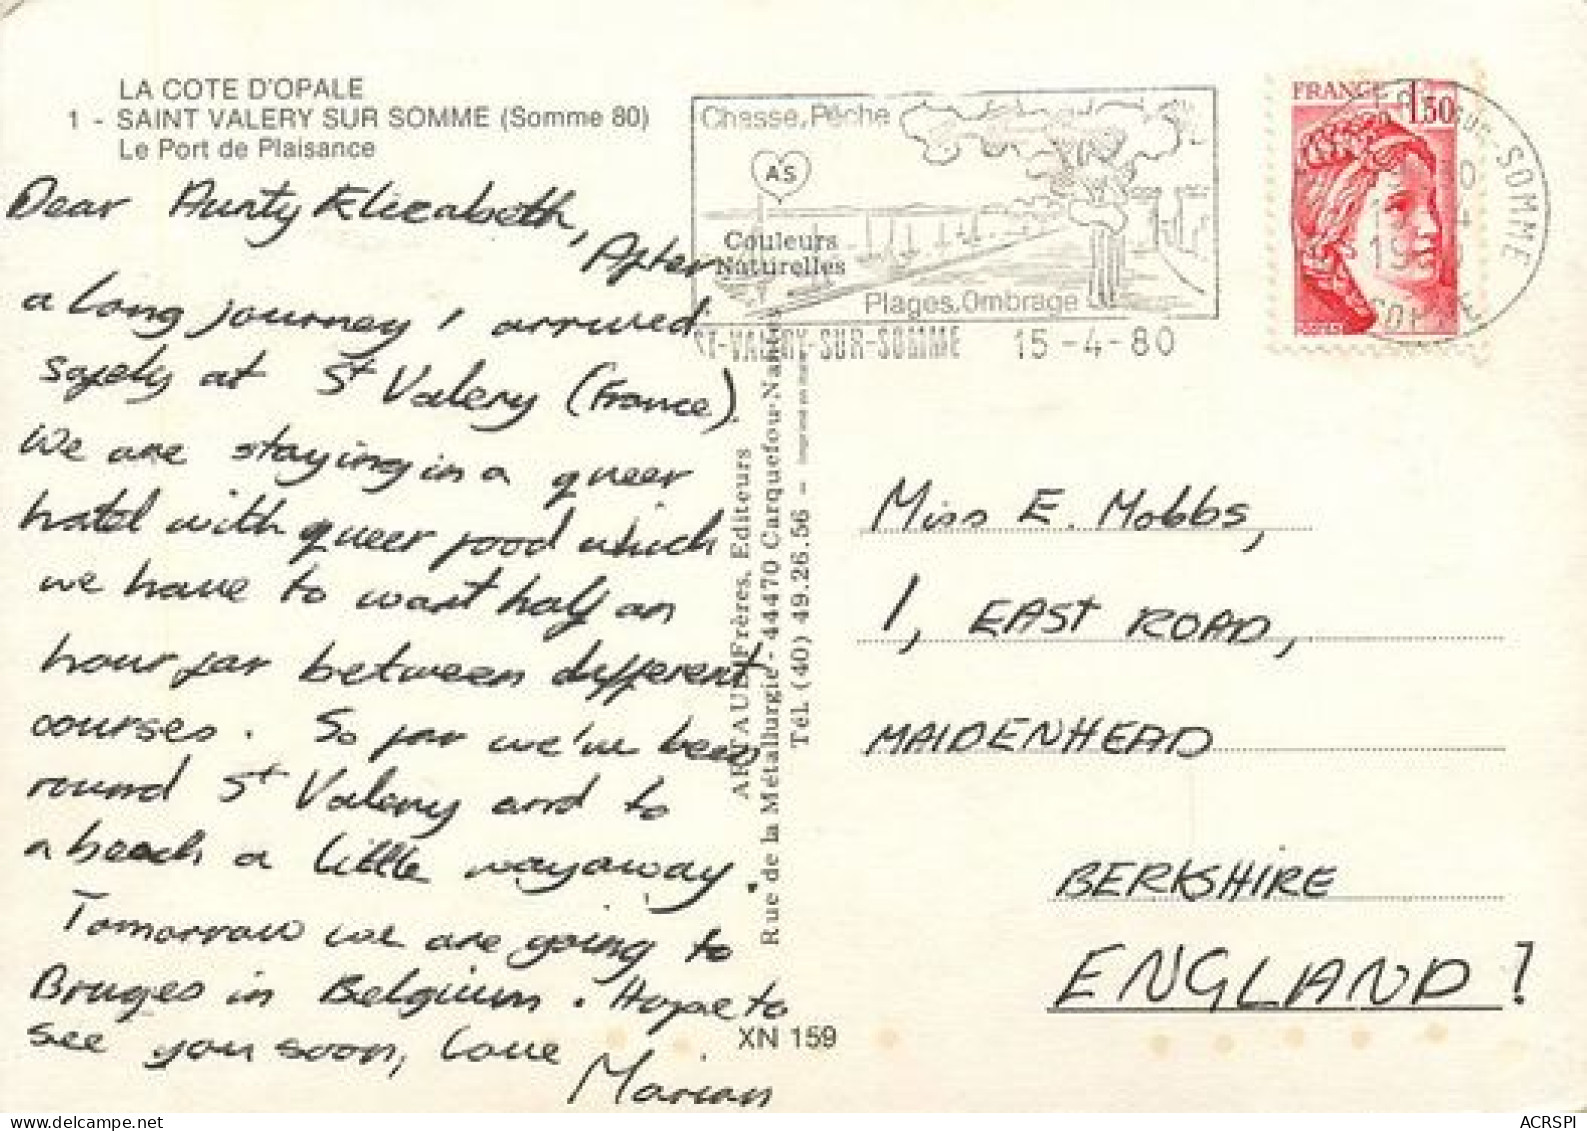 LA COTE D'OPALE
1 - SAINT VALERY SUR SOMME (Somme 80)
Le Port de Plaisance
Dear Aunty Elizabeth,
After
a long journey I arrived
safely at St Valery (France).
We are staying in a queer
hotel with queer food which
we have to wait half an
hour for between different
courses. So far we've been
round St Valery and to
a beach a little way away.
Tomorrow we are going to
Bruges in Belgium. Hope to
see you soon, love
Marian
Chasse, Pêche
AS
Couleurs
Naturelles
Plages, Ombrage
ST-VALERY-SUR-SOMME 15-4-80
FRANCE 1,30
SOMME
ARTAUD Frères, Editeurs
Rue de la Métallurgie - 44470 Carquefou-Nantes
Tél. (40) 49.26.56 -
XN 159
Miss E. Mobbs,
1, EAST ROAD,
MAIDENHEAD
BERKSHIRE
ENGLAND!
ACRSPI